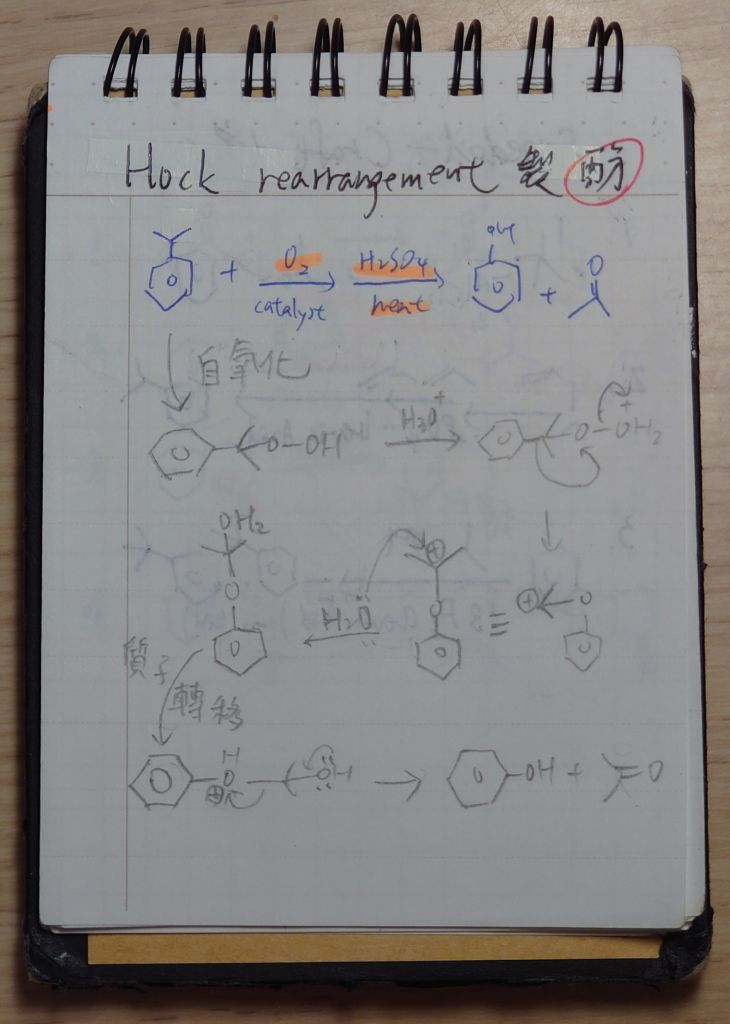 Hock rearrangement 製酚
+ O2 catalyst H2SO4 heat OH + O
自氧化
O-OH H3O+ O-OH2 +
OH2
O H2O ⊕ O ≡ ⊕ O
質子
轉移
H
O ⊕ OH → OH + O